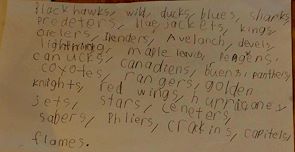 Blackhawks, wild, ducks, blues, sharks,
predetors, blue jackets, kings
oielers, ilenders, Avelanch, devels,
lightning, maple leavis, pengens,
canucks, Canadiens, buens, panthers,
coyotes, rangers, golden
knights, red wings, hurricanes,
jets, stars, ceneters,
sabers, phliers, crakins, capitels,
flames.